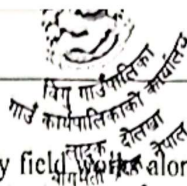 विगु गाउँपालिका
गाउँ कार्यपालिकाको कार्यालय
दोलखा
नेपाल
y field works alon